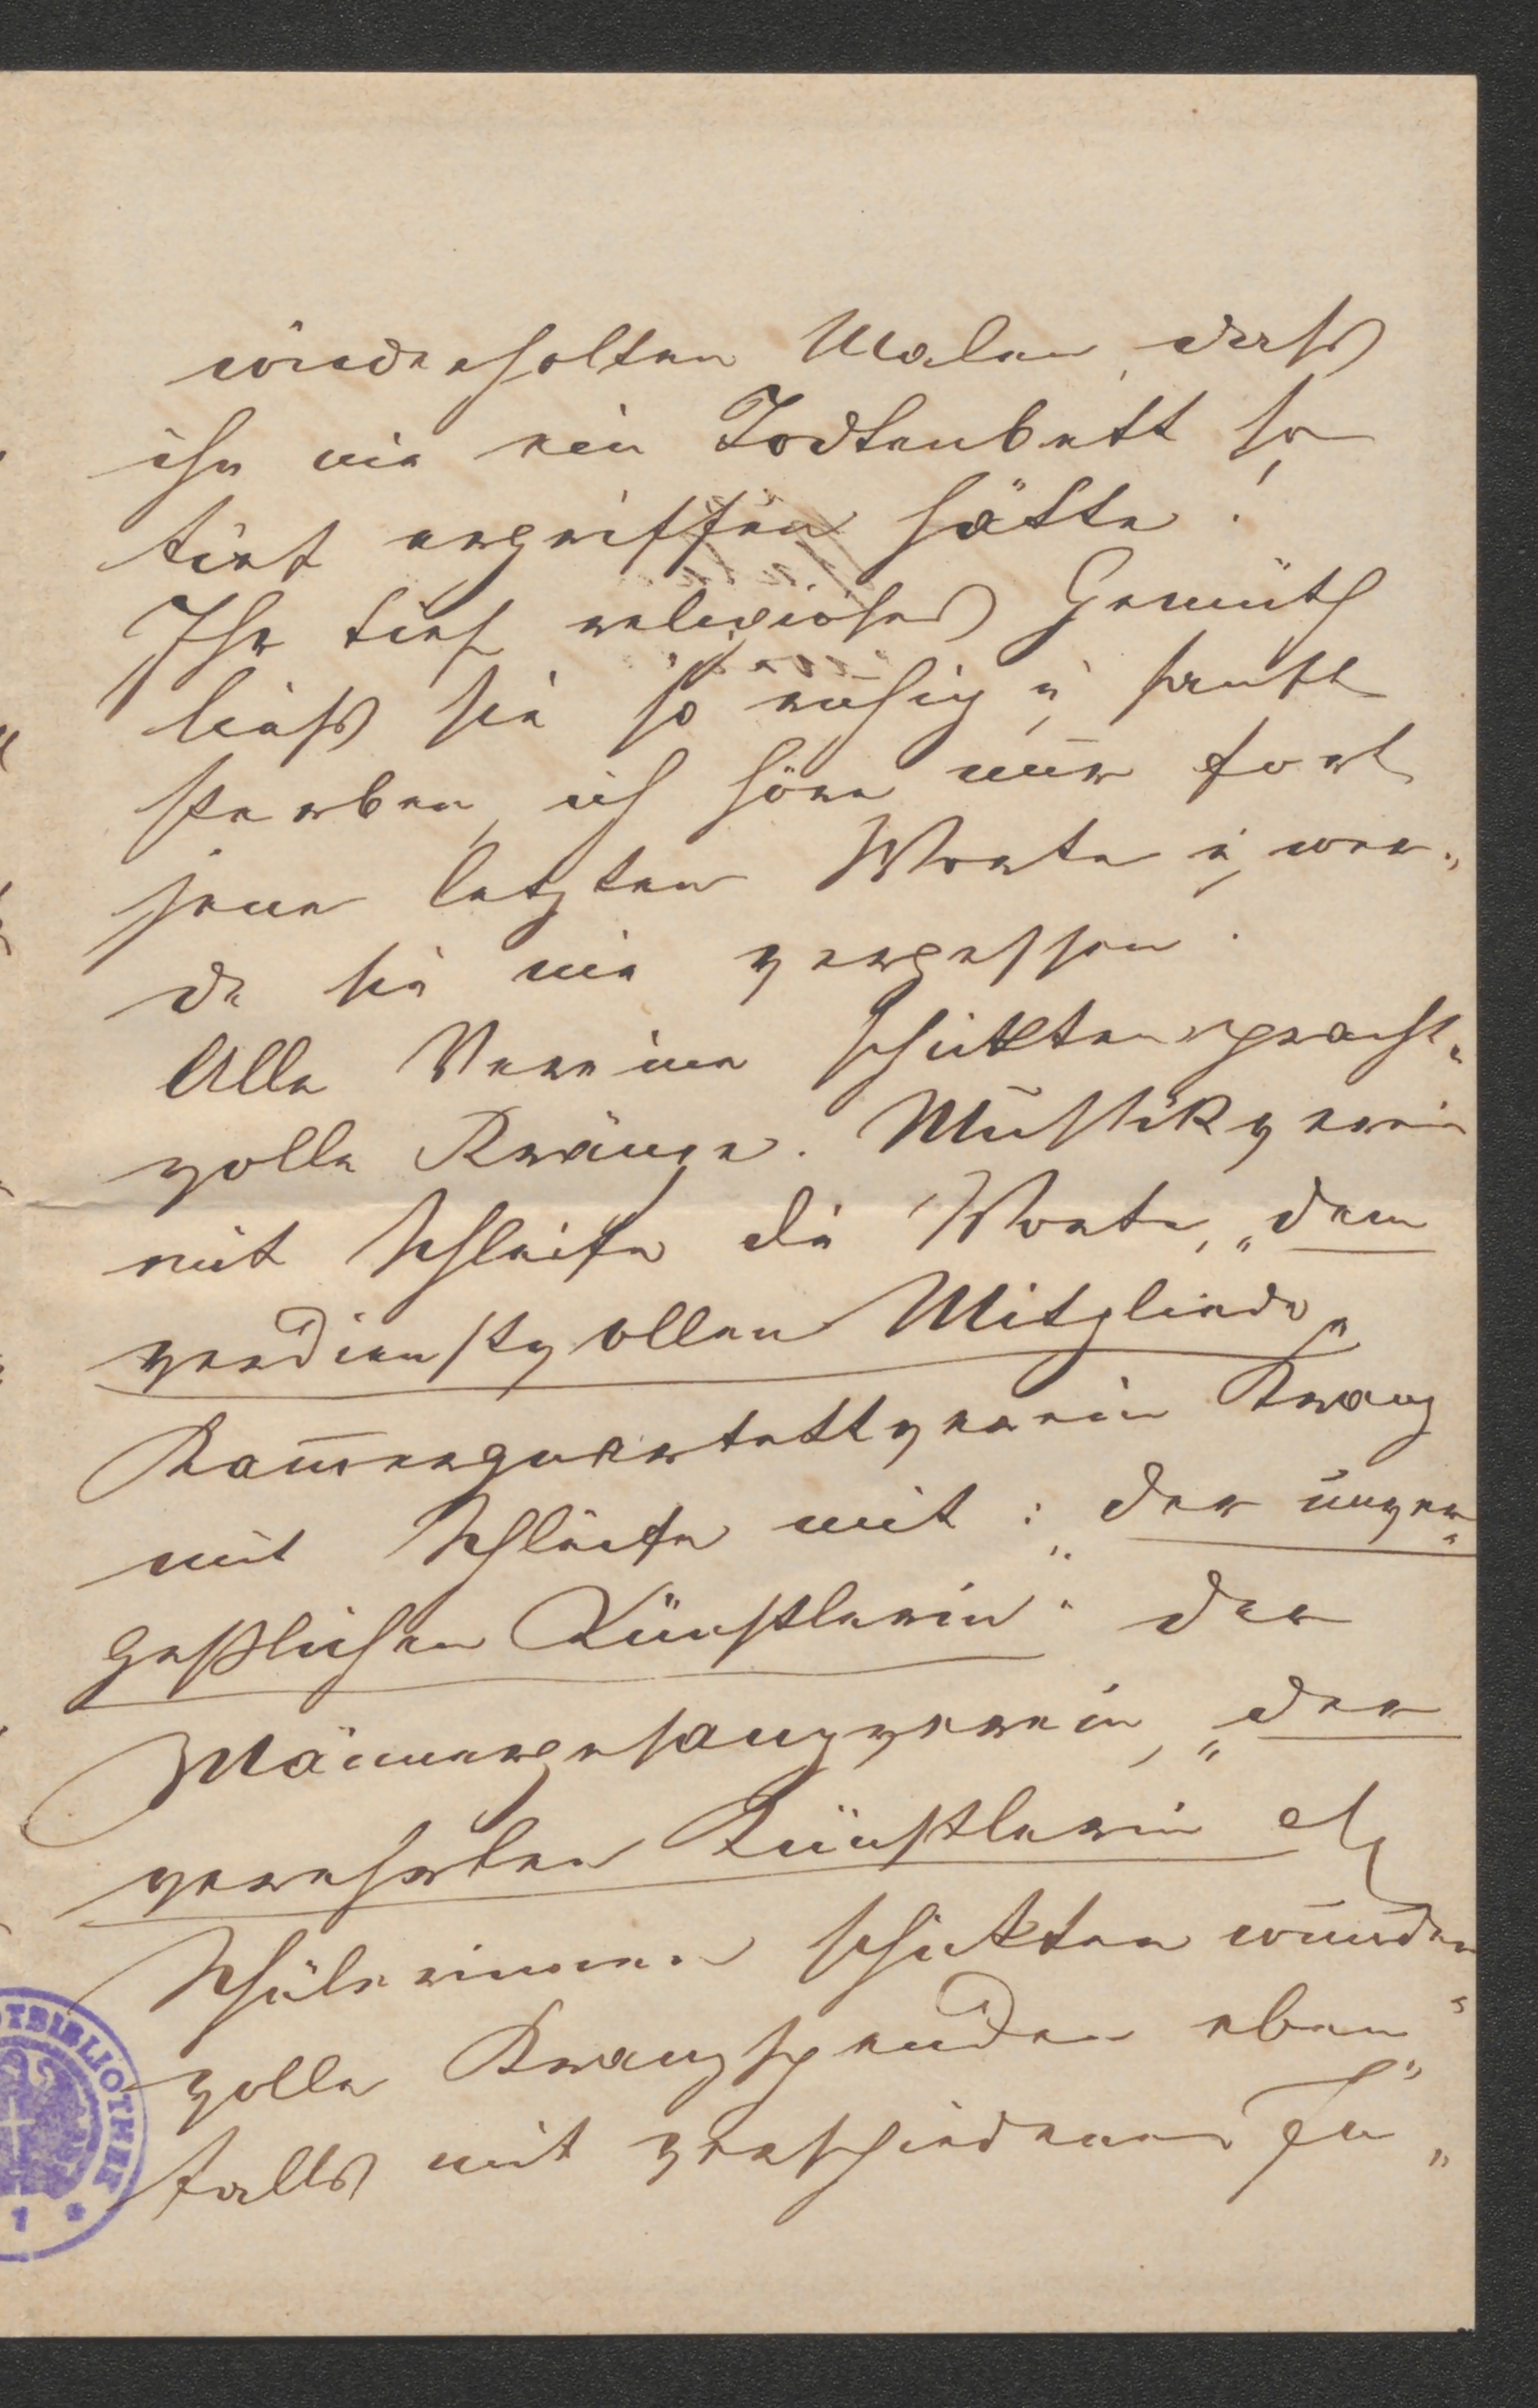 wiederholten Malen, dass
ihn nie ein Todtenbett so
tief ergriffen hätte!
Ihr tief religiöses Gemüth
liess sie so ruhig u sanft
sterben, ich höre nur fort
jene letzten Worte u, wer„
de sie nie vergessen.
Alle Vereine schickten pracht„
volle Kränze. Musikverein
mit Schleife die Worte, „dem
verdienstvollen Mitgliede„
Kam̄erquartettverein Kranz
mit Schleife mit: „der unver„
geßlichen Künstlerin" der
Männergesangverein, „der
verehrten Künstlerin etz
Schülerinnen schickten wunder„
volle Kranzspenden eben„
falls mit verschiedenen In„
OTBIBLIOTHEK